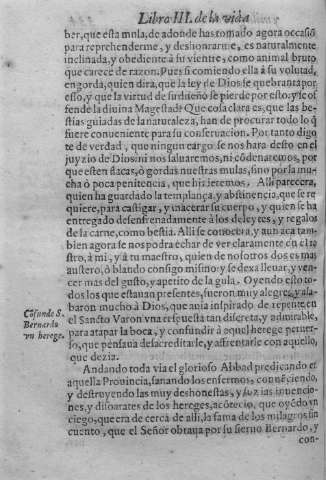 Libro III. de la vida
ber, que esta mula, de adonde has tomado agora occasiõ
para reprehenderme, y deshonrarme, es naturalmente
inclinada, y obediente à su vientre, como animal bruto
que carece de razon. Pues si comiendo ella à su volũtad,
engorda, quien dira, que la ley de Dios se quebranta por
esso, y que la virtud de su dueño se pierde por esto, y se of
fende la diuina Magestad? Que cosa clara es, que las bes-
tias guiadas de la naturaleza, han de procurar todo lo q̃
fuere conueniente para su conseruacion. Por tanto digo
te de verdad, que ningun cargo se nos hara desto en el
juyzio de Dios: ni nos saluaremos, ni cõdenaremos, por
que esten flacas, ò gordas nuestras mulas, sino por la mu-
cha ò poca penitencia, que hizieremos. Alli parecera,
quien ha guardado la templança, y abstinencia, que se re
quiere, para castigar, y macerar su cuerpo, y quien se ha
entregado desenfrenadamente à los deleytes, y regalos
de la carne, como bestia. Alli se conocera, y aun aca tam-
bien agora se nos podra echar de ver claramente en el ro
stro, à mi, y à tu maestro, quien de nosotros dos es mas
austero, ò blando consigo mismo: y se dexa lleuar, y ven-
cer mas del gusto, y apetito de la gula. Oyendo esto to-
dos los que estauan presentes, fueron muy alegres, y ala-
baron mucho à Dios, que auia inspirado de repente en
el Sancto Varon vna respuesta tan discreta, y admirable,
para atapar la boca, y confundir à aquel herege peruer-
so, que pensaua desacreditarle, y affrentarle con aquello,
que dezia.
Cõfunde S.
Bernardo
vn herege.
Andando toda via el glorioso Abbad predicando en
aquella Prouincia, sanando los enfermos, conuẽciendo,
y destruyendo las muy deshonestas, y suzias inuencio-
nes, y disparates de los hereges, acõtecio, que oyẽdo vn
ciego, que era de cerca de alli, la fama de los milagros sin
cuento, que el Señor obraua por su sieruo Bernardo, y
con-